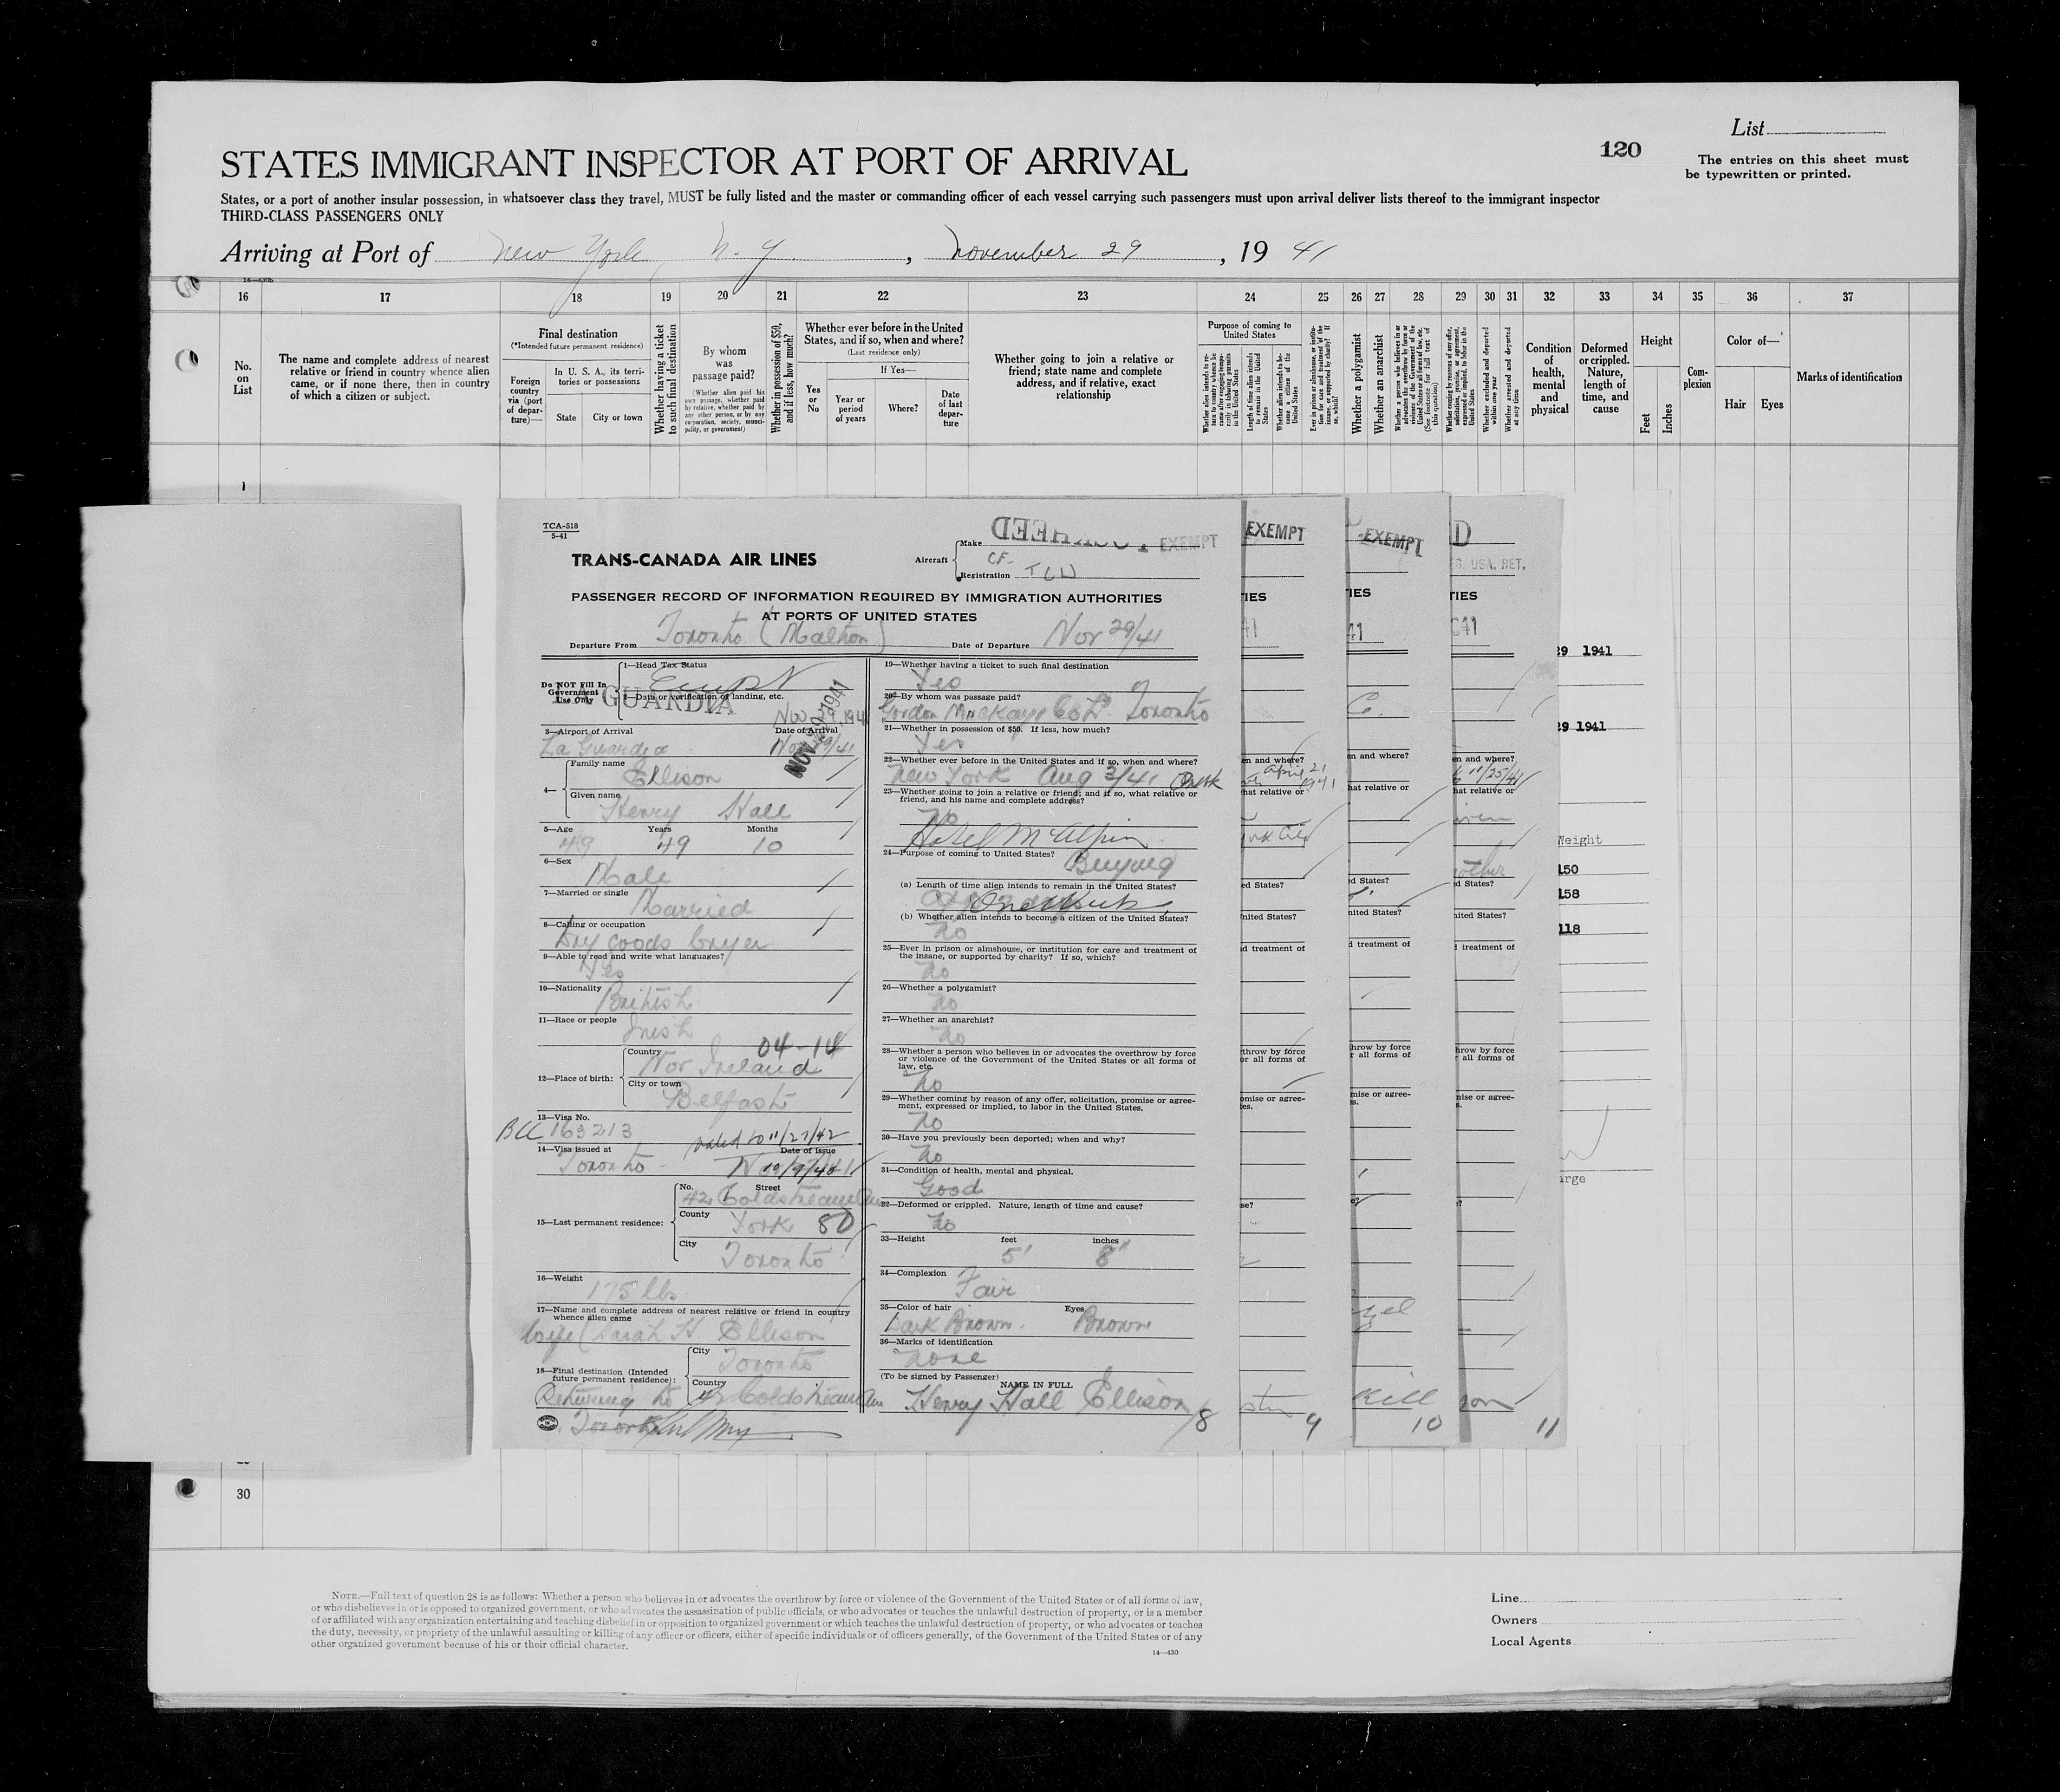 List
120
The entries on this sheet must
be typewritten or printed.
STATES IMMIGRANT INSPECTOR AT PORT OF ARRIVAL
States, or a port of another insular possession, in whatsoever class they travel, MUST be fully listed and the master or commanding officer of each vessel carrying such passengers must upon arrival deliver lists thereof to the immigrant inspector
THIRD-CLASS PASSENGERS ONLY
Arriving at Port of New York, N. Y. , November 29 , 19 41
16 17 18 19 20 21 22 23 24 25 26 27 28 29 30 31 32 33 34 35 36 37
No. on List
The name and complete address of nearest
relative or friend in country whence alien
came, or if none there, then in country
of which a citizen or subject.
Final destination
(*Intended future permanent residence)
Foreign country via (port of departure)—
In U. S. A., its territories or possessions
State
City or town
Whether having a ticket to such final destination
By whom was passage paid?
(Whether alien paid his own passage, whether paid by relative, whether paid by any other person, or by any corporation, society, municipality, or government)
Whether in possession of $50, and if less, how much?
Whether ever before in the United
States, and if so, when and where?
(Last residence only)
Yes or No
If Yes—
Year or period of years
Where?
Date of last departure
Whether going to join a relative or
friend; state name and complete
address, and if relative, exact
relationship
Purpose of coming to United States
Length of time alien intends to remain in the United States
Whether alien intends to become a citizen of the United States
Whether a polygamist
Whether an anarchist
Whether excluded and deported within one year
Whether arrested and deported at any time
Condition of health, mental and physical
Deformed or crippled. Nature, length of time, and cause
Height
Feet
Inches
Complexion
Color of—
Hair
Eyes
Marks of identification
1
TCA-518
5-41
TRANS-CANADA AIR LINES
Aircraft
Make
EXEMPT
CF-
Registration TCW
PASSENGER RECORD OF INFORMATION REQUIRED BY IMMIGRATION AUTHORITIES
AT PORTS OF UNITED STATES
Departure From Toronto (Malton)
Date of Departure Nov 29/41
Do NOT Fill In
Government
Use Only
1—Head Tax Status
Exempt
2—Data or verification of landing, etc.
GUARDIA
NOV 29 1941
3—Airport of Arrival
La Guardia
Date of Arrival
Nov 29/41
4—
Family name
Ellison
Given name
Henry Hall
5—Age
Years
Months
49 49 10
6—Sex
Male
7—Married or single
Married
8—Calling or occupation
Dry goods buyer
9—Able to read and write what languages?
Yes
10—Nationality
British
11—Race or people
Irish
04-14
12—Place of birth:
Country
Nor Ireland
City or town
Belfast
13—Visa No.
BCC 169213
valid to 11/27/42
14—Visa issued at
Toronto
Date of Issue
15—Last permanent residence:
No.
Street
42 Coldstream Ave
County
York 80
City
Toronto
16—Weight
175 lbs
17—Name and complete address of nearest relative or friend in country
whence alien came
Wife (Sarah H Ellison
18—Final destination (Intended
future permanent residence):
City
Toronto
Country
Coldstream Ave
Returning to
Toronto
19—Whether having a ticket to such final destination
Yes
20—By whom was passage paid?
Gordon Mackay & Co Ltd Toronto
21—Whether in possession of $50. If less, how much?
Yes
22—Whether ever before in the United States and if so, when and where?
New York Aug 3/41
23—Whether going to join a relative or friend; and if so, what relative or
friend, and his name and complete address?
No
Hotel McAlpin
24—Purpose of coming to United States?
Buying
(a) Length of time alien intends to remain in the United States?
One Week
(b) Whether alien intends to become a citizen of the United States?
No
25—Ever in prison or almshouse, or institution for care and treatment of
the insane, or supported by charity? If so, which?
No
26—Whether a polygamist?
No
27—Whether an anarchist?
No
28—Whether a person who believes in or advocates the overthrow by force
or violence of the Government of the United States or all forms of
law, etc.
No
29—Whether coming by reason of any offer, solicitation, promise or agree-
ment, expressed or implied, to labor in the United States.
No
30—Have you previously been deported; when and why?
No
31—Condition of health, mental and physical.
Good
32—Deformed or crippled. Nature, length of time and cause?
No
33—Height
feet
inches
5' 8"
34—Complexion
Fair
35—Color of hair
Eyes
Dark Brown. Brown
36—Marks of identification
None
(To be signed by Passenger)
NAME IN FULL
Henry Hall Ellison
8
EXEMPT
IES
41
en and where?
April 21
1941
hat relative or
ed States?
nited States?
d treatment of
throw by force
all forms of
omise or agree-
es.
se?
9
EXEMPT
IES
41
en and where?
hat relative or
d States?
nited States?
d treatment of
hrow by force
r all forms of
mise or agree-
s.
10
D
S. USA. RET.
TIES
C41
en and where?
11/25/41
hat relative or
d States?
nited States?
d treatment of
hrow by force
all forms of
mise or agree-
s.
?
son
11
29 1941
29 1941
Weight
150
158
118
arge
30
NOTE.—Full text of question 28 is as follows: Whether a person who believes in or advocates the overthrow by force or violence of the Government of the United States or of all forms of law,
or who disbelieves in or is opposed to organized government, or who advocates the assassination of public officials, or who advocates or teaches the unlawful destruction of property, or is a member
of or affiliated with any organization entertaining and teaching disbelief in or opposition to organized government or which teaches the unlawful destruction of property, or who advocates or teaches
the duty, necessity, or propriety of the unlawful assaulting or killing of any officer or officers, either of specific individuals or of officers generally, of the Government of the United States or of any
other organized government because of his or their official character.
14—430
Line
Owners
Local Agents